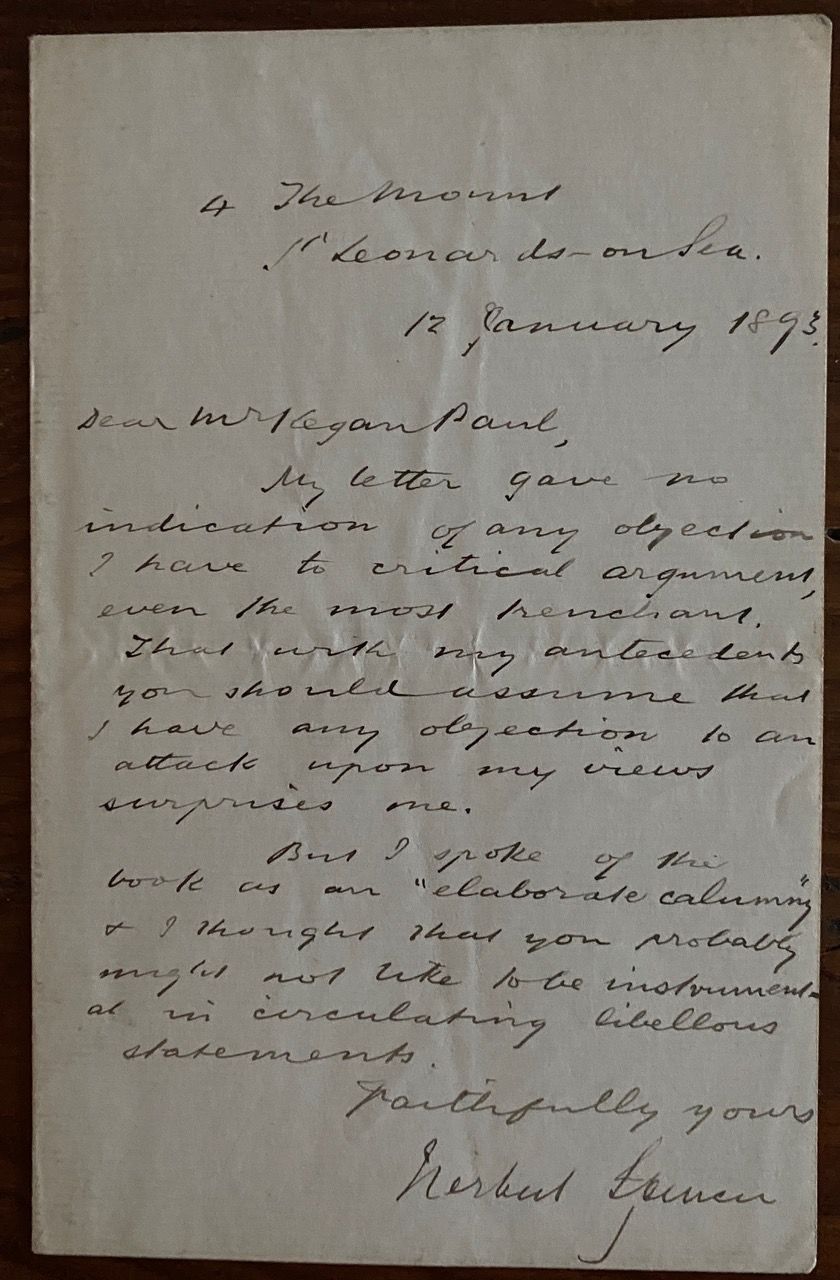 4 The Mount
St Leonards-on Sea.
12 January 1893.
Dear Mr Kegan Paul,
My letter gave no
indication of any objection
I have to critical argument,
even the most trenchant.
That with my antecedents
you should assume that
I have any objection to an
attack upon my views
surprises me.
But I spoke of the
book as an "elaborate calumny"
& I thought that you probably
might not like to be instrument-
al in circulating libellous
statements.
Faithfully yours
Herbert Spencer